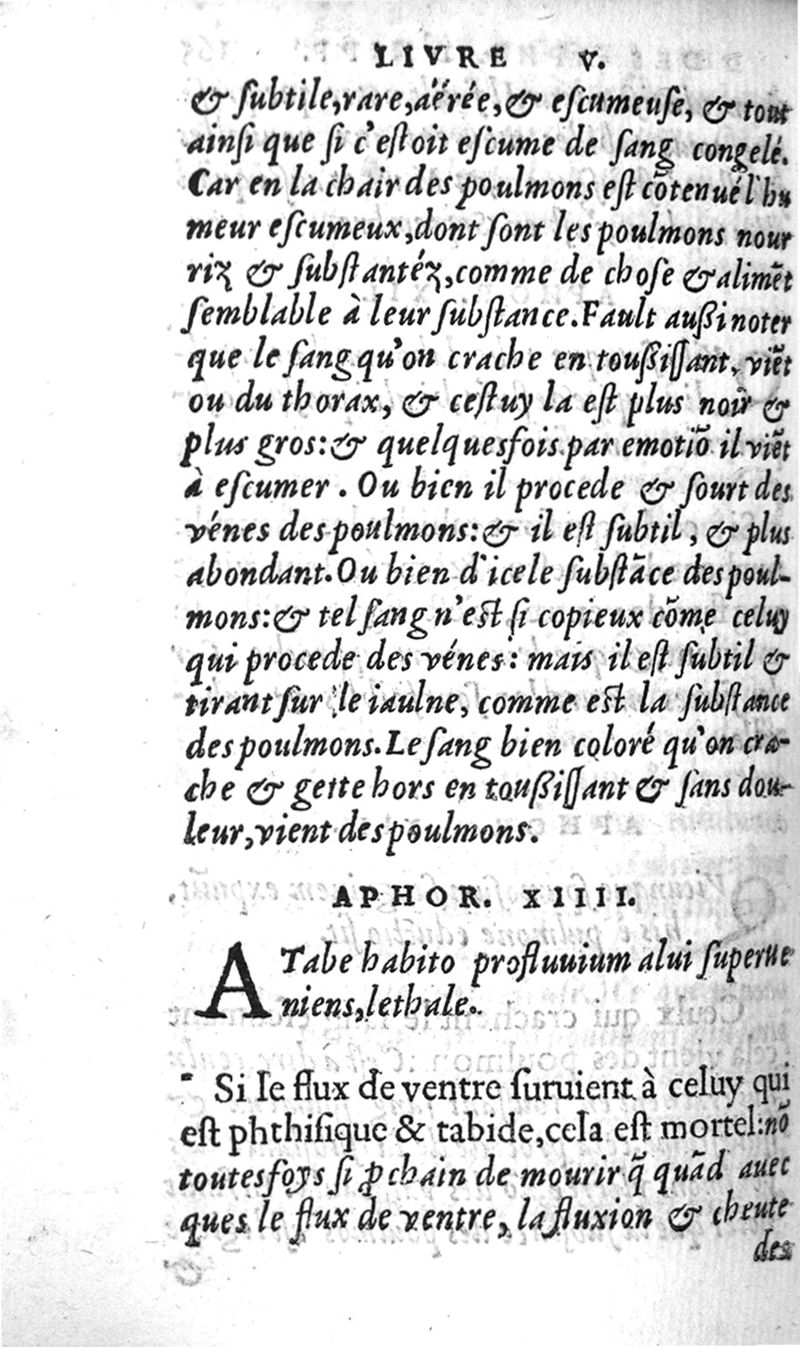 LIVRE V.
& ſubtile, rare, aérée, & eſcumeuſe, & tout
ainſi que ſi c'eſtoit eſcume de ſang congelé.
Car en la chair des poulmons eſt cõtenué l'hu
meur eſcumeux, dont ſont les poulmons nour
riz & ſubſtantéz, comme de choſe & alimẽt
ſemblable à leur ſubſtance. Fault außi noter
que le ſang qu'on crache en toußiſſant, viẽt
ou du thorax, & ceſtuy la eſt plus noir &
plus gros: & quelquesfois par emotiõ il viẽt
à eſcumer. Ou bien il procede & ſourt des
vénes des poulmons: & il eſt ſubtil, & plus
abondant. Ou bien d'icele ſubſtãce des poul-
mons: & tel ſang n'eſt ſi copieux cõme celuy
qui procede des vénes: mais il eſt ſubtil &
tirant ſur le iaulne, comme eſt la ſubſtance
des poulmons. Le ſang bien coloré qu'on cra-
che & gette hors en toußiſſant & ſans dou-
leur, vient des poulmons.
APHOR. XIIII.
A Tabe habito profluuium alui ſuperue
niens, lethale.
Si le flux de ventre ſuruient à celuy qui
eſt phthiſique & tabide, cela eſt mortel: nõ
toutesfoys ſi ꝓchain de mourir q̃ quãd auec
ques le flux de ventre, la fluxion & cheute
des